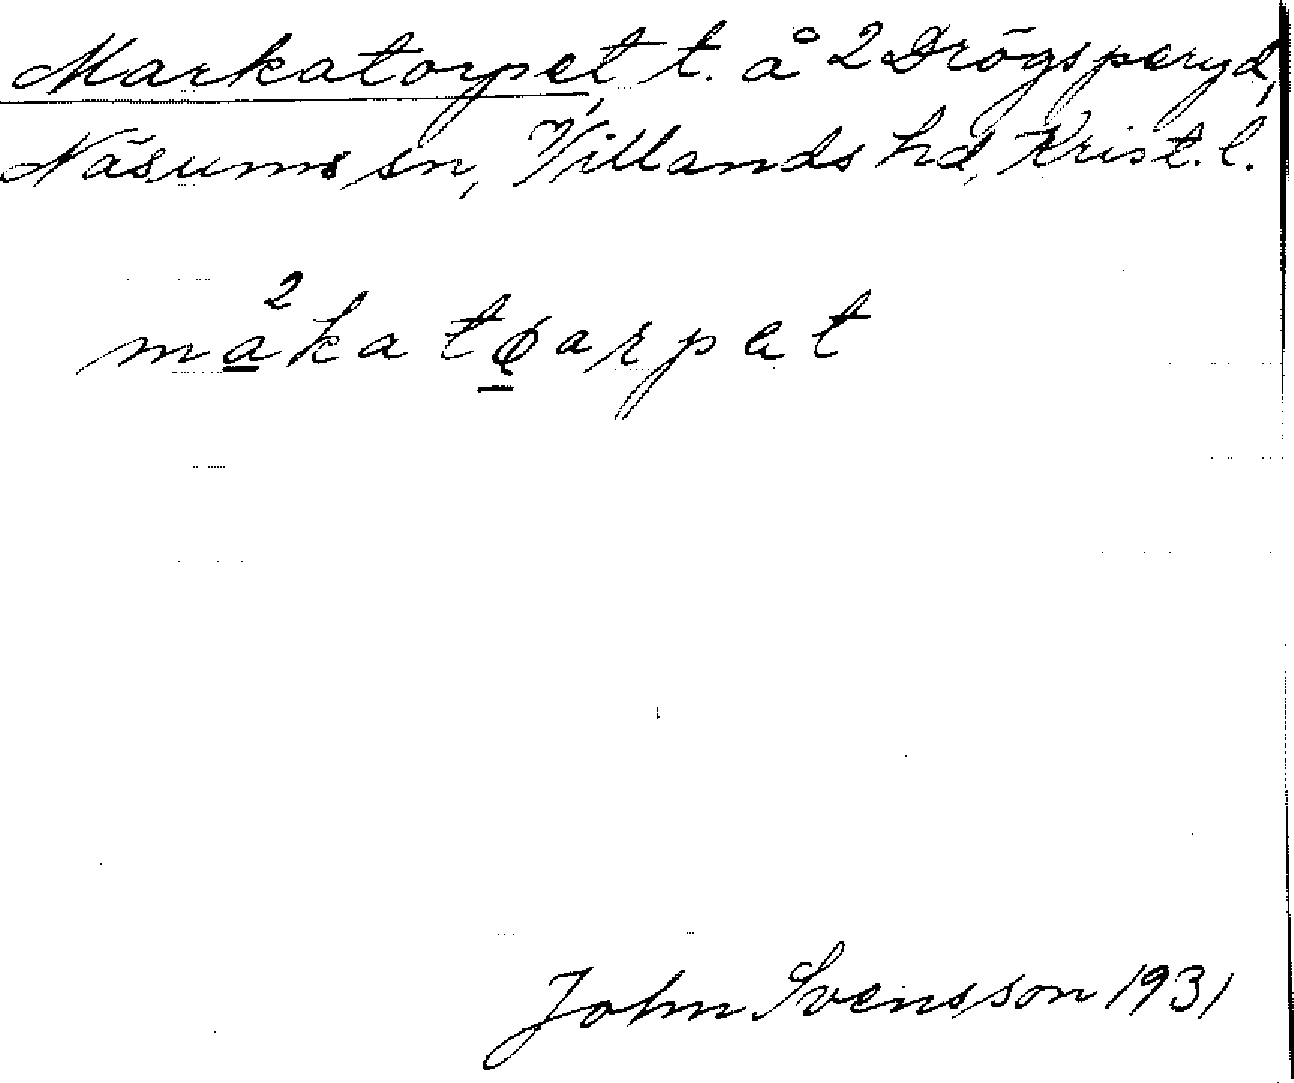 Markatorpet, t. å 2 Drögsperyd,
Näsums sn, Villands hd, Krist. l.
ma²katøarpat
John Svensson 1931